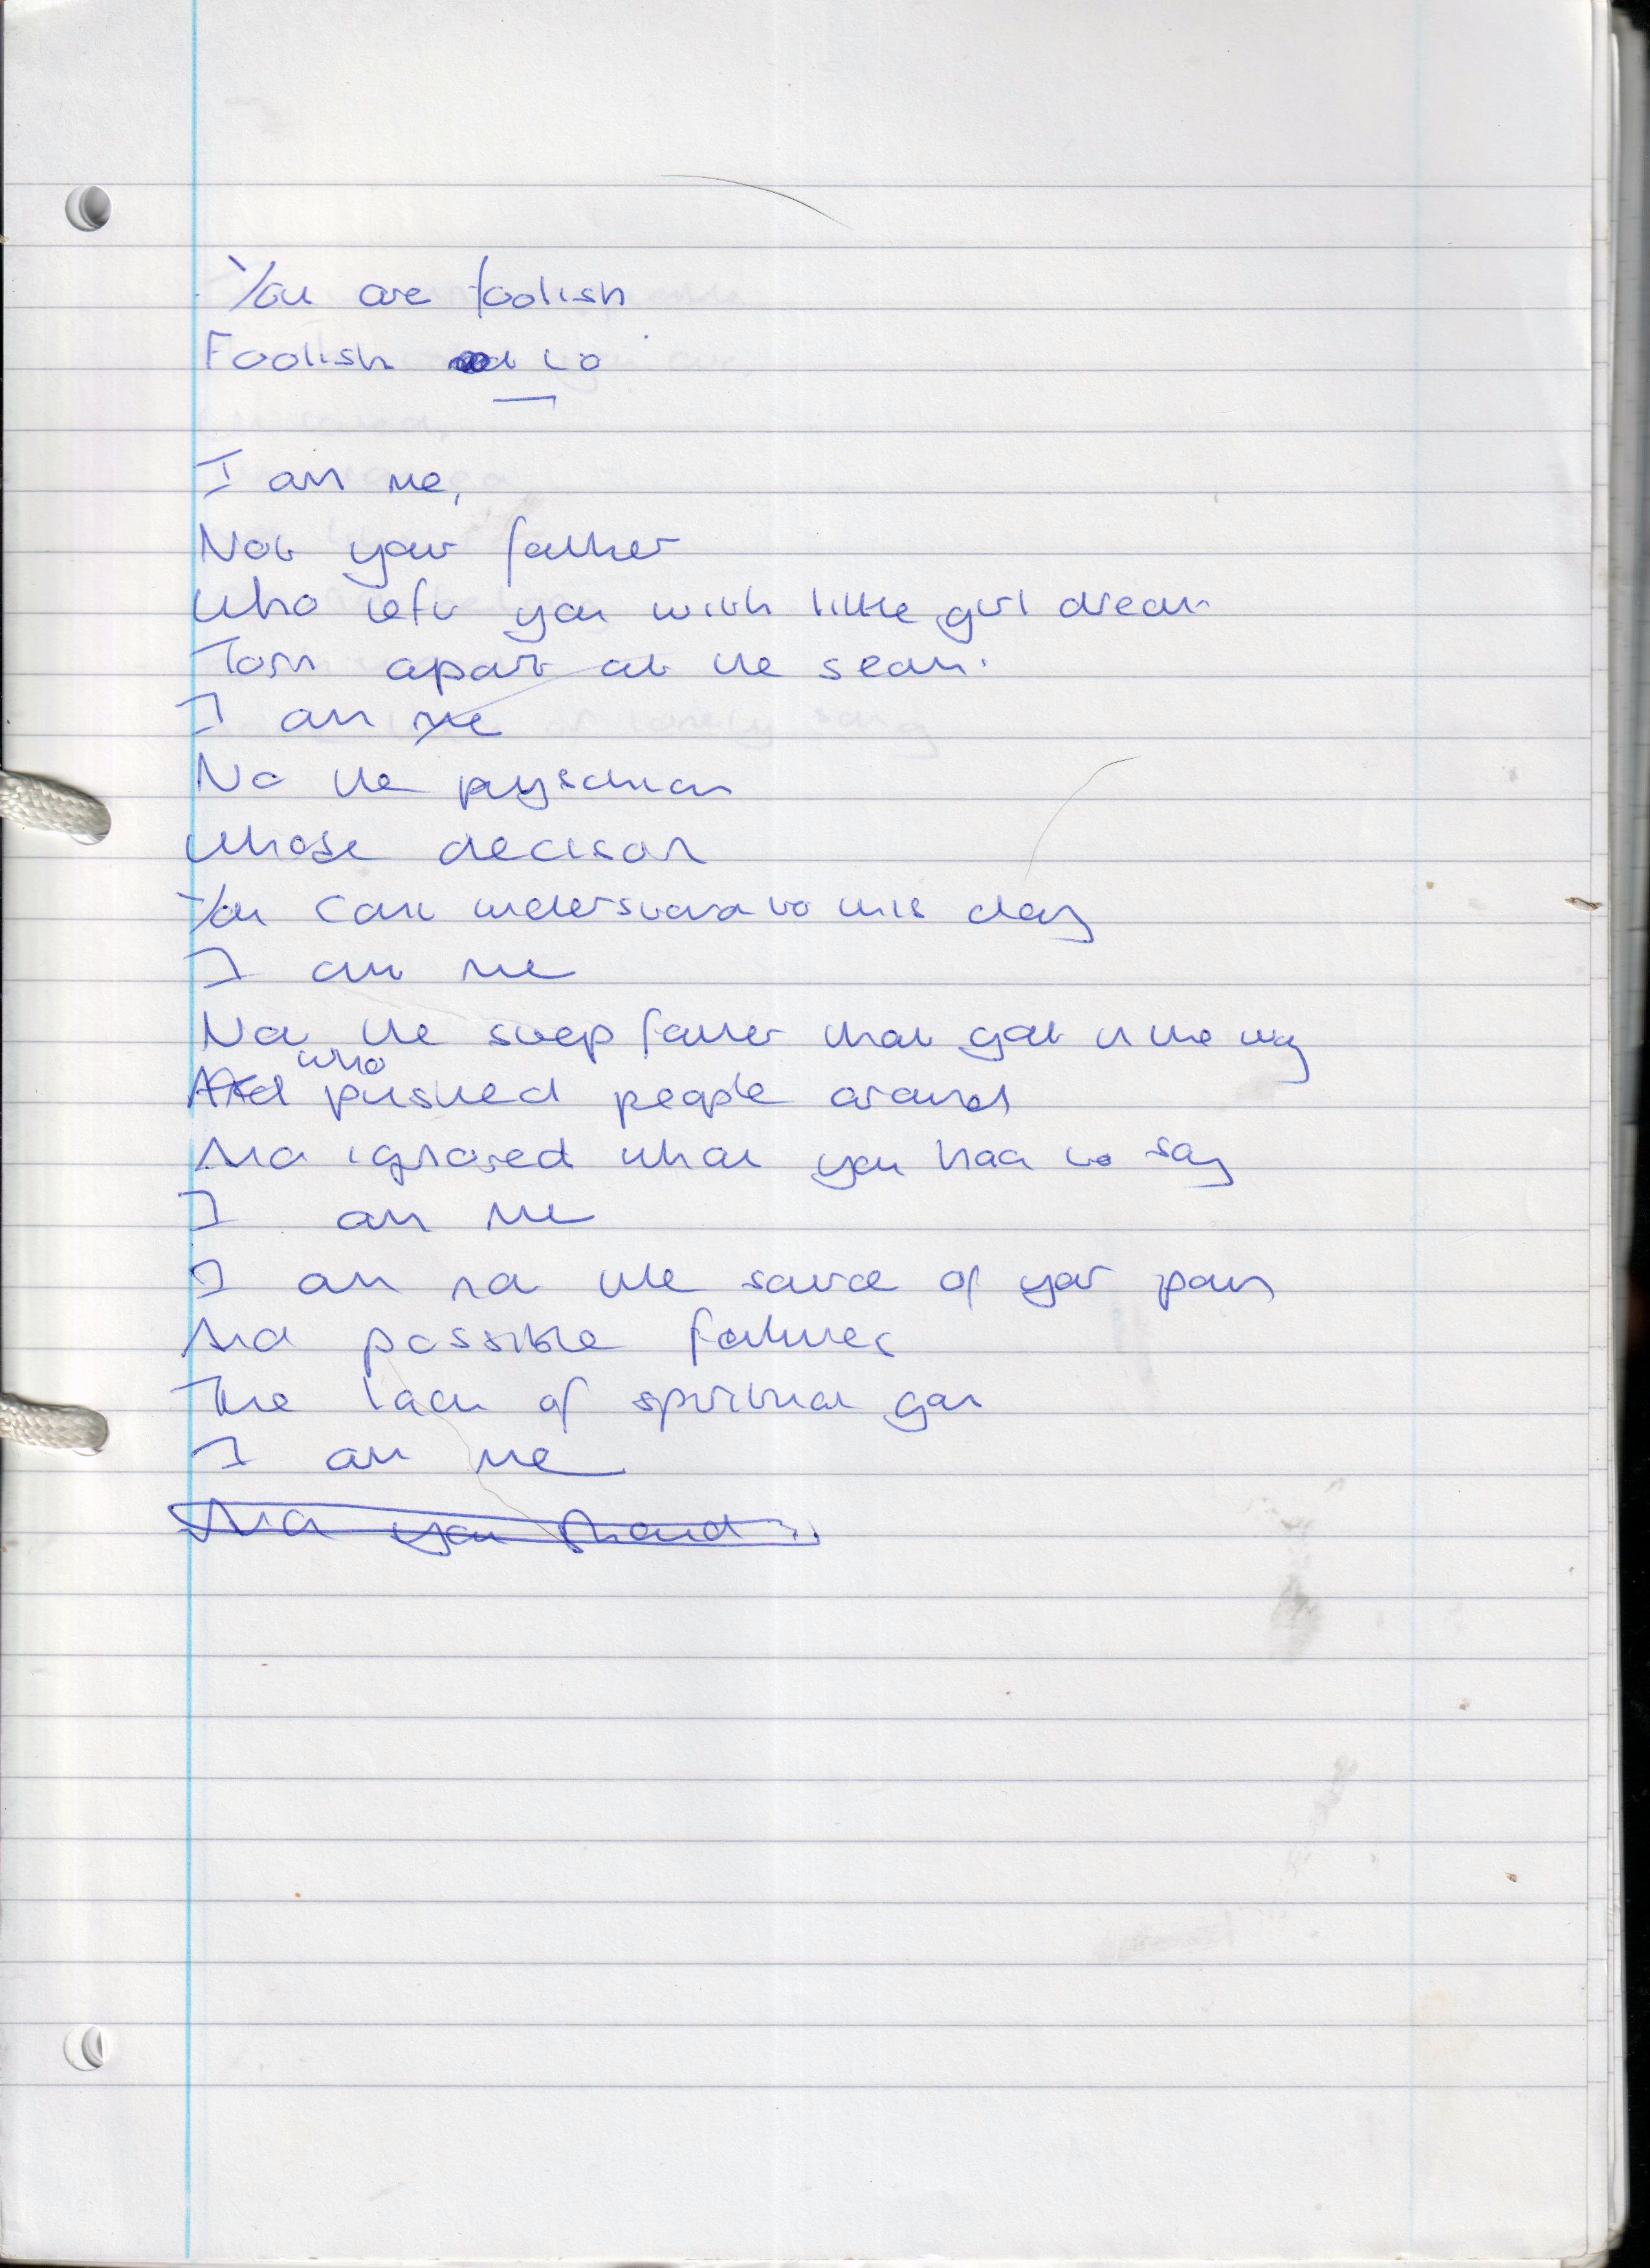 You are foolish
Foolish to
I am me,
Not your father
Who left you with little girl dream
Torn apart at the seam.
I am me
No the physician
Whose decision
You can understand to this day
I am me
Not the step father that got in the way
who
And pushed people around
And ignored what you had to say
I am me
I am not the source of your pain
And possible failures
The lack of spiritual gain
I am me
And you should